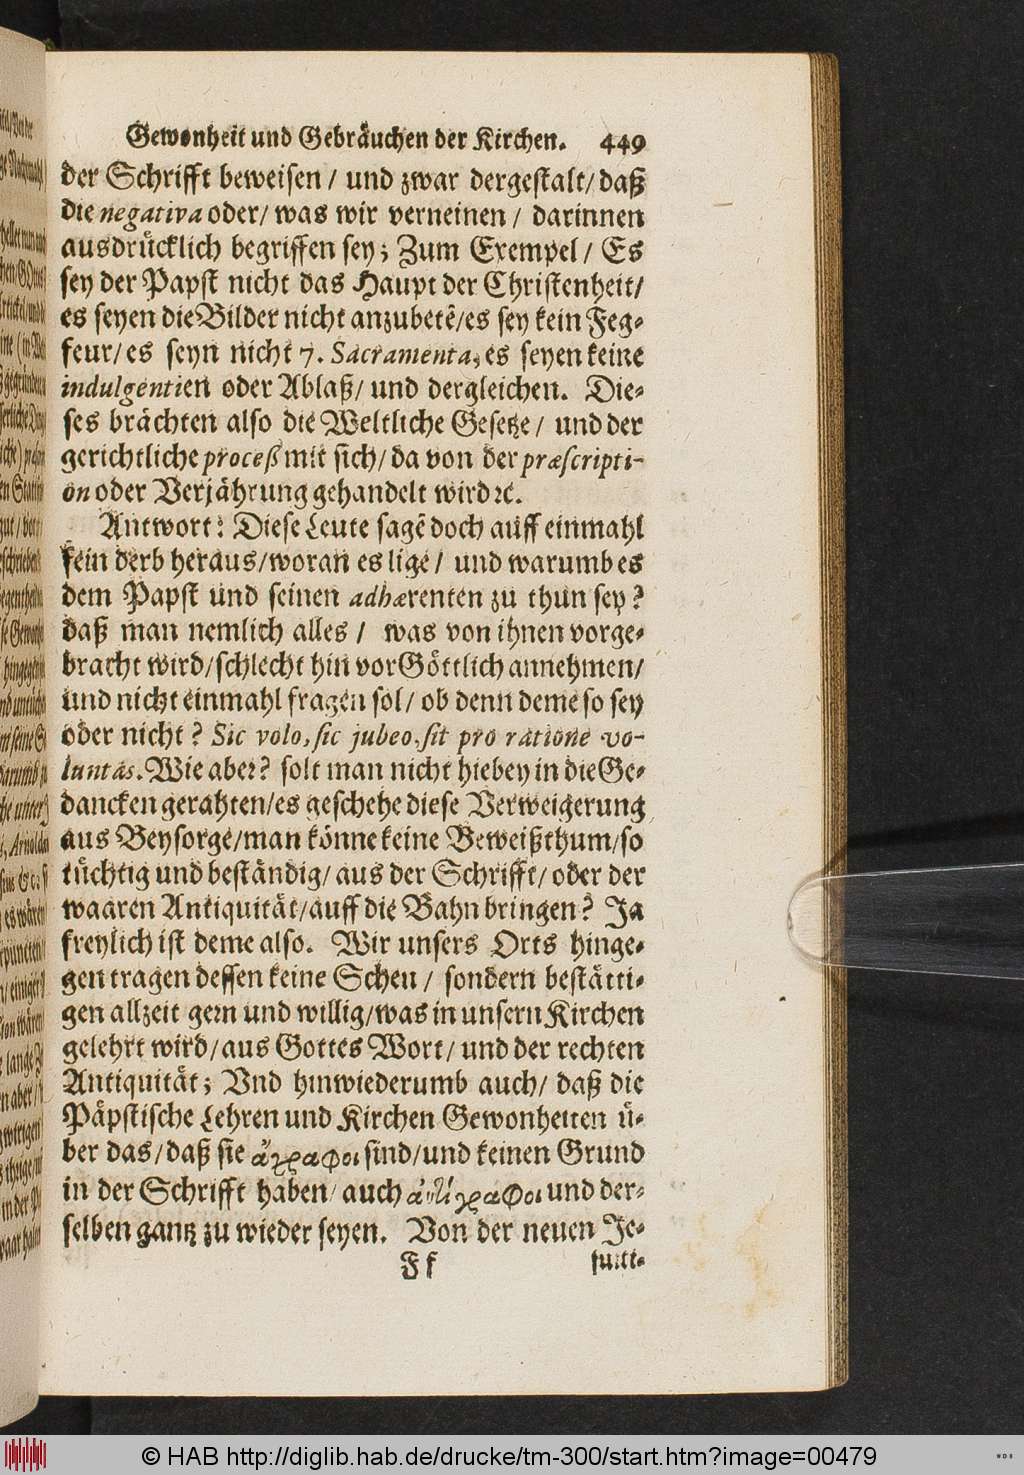 Gewonheit und Gebräuchen der Kirchen. 449
der Schrifft beweisen / und zwar dergestalt / daß
die negativa oder / was wir verneinen / darinnen
ausdrücklich begriffen sey; Zum Exempel / Es
sey der Papst nicht das Haupt der Christenheit /
es seyen die Bilder nicht anzubetẽ / es sey kein Feg-
feur / es seyn nicht 7. Sacramenta, es seyen keine
indulgentien oder Ablaß / und dergleichen. Die-
ses brächten also die Weltliche Gesetze / und der
gerichtliche proceß mit sich / da von der præscripti-
on oder Verjährung gehandelt wird ꝛc.
Antwort: Diese Leute sagẽ doch auff einmahl
fein derb heraus / woran es lige / und warumb es
dem Papst und seinen adhærenten zu thun sey?
daß man nemlich alles / was von ihnen vorge-
bracht wird / schlecht hin vor Göttlich annehmen /
und nicht einmahl fragen sol / ob denn deme so sey
oder nicht? Sic volo, sic jubeo, sit pro ratione vo-
luntas. Wie aber? solt man nicht hiebey in die Ge-
dancken gerahten / es geschehe diese Verweigerung
aus Beysorge / man könne keine Beweißthum / so
tüchtig und beständig / aus der Schrifft / oder der
waaren Antiquität / auff die Bahn bringen? Ja
freylich ist deme also. Wir unsers Orts hinge-
gen tragen dessen keine Scheu / sondern bestätti-
gen allzeit gern und willig / was in unsern Kirchen
gelehrt wird / aus Gottes Wort / und der rechten
Antiquität; Vnd hinwiederumb auch / daß die
Päpstische Lehren und Kirchen Gewonheiten ü-
ber das / daß sie ἄγραφοι sind / und keinen Grund
in der Schrifft haben / auch ἀντίγραφοι und der-
selben gantz zu wieder seyen. Von der neuen Je-
Ff suiti-
© HAB http://diglib.hab.de/drucke/tm-300/start.htm?image=00479